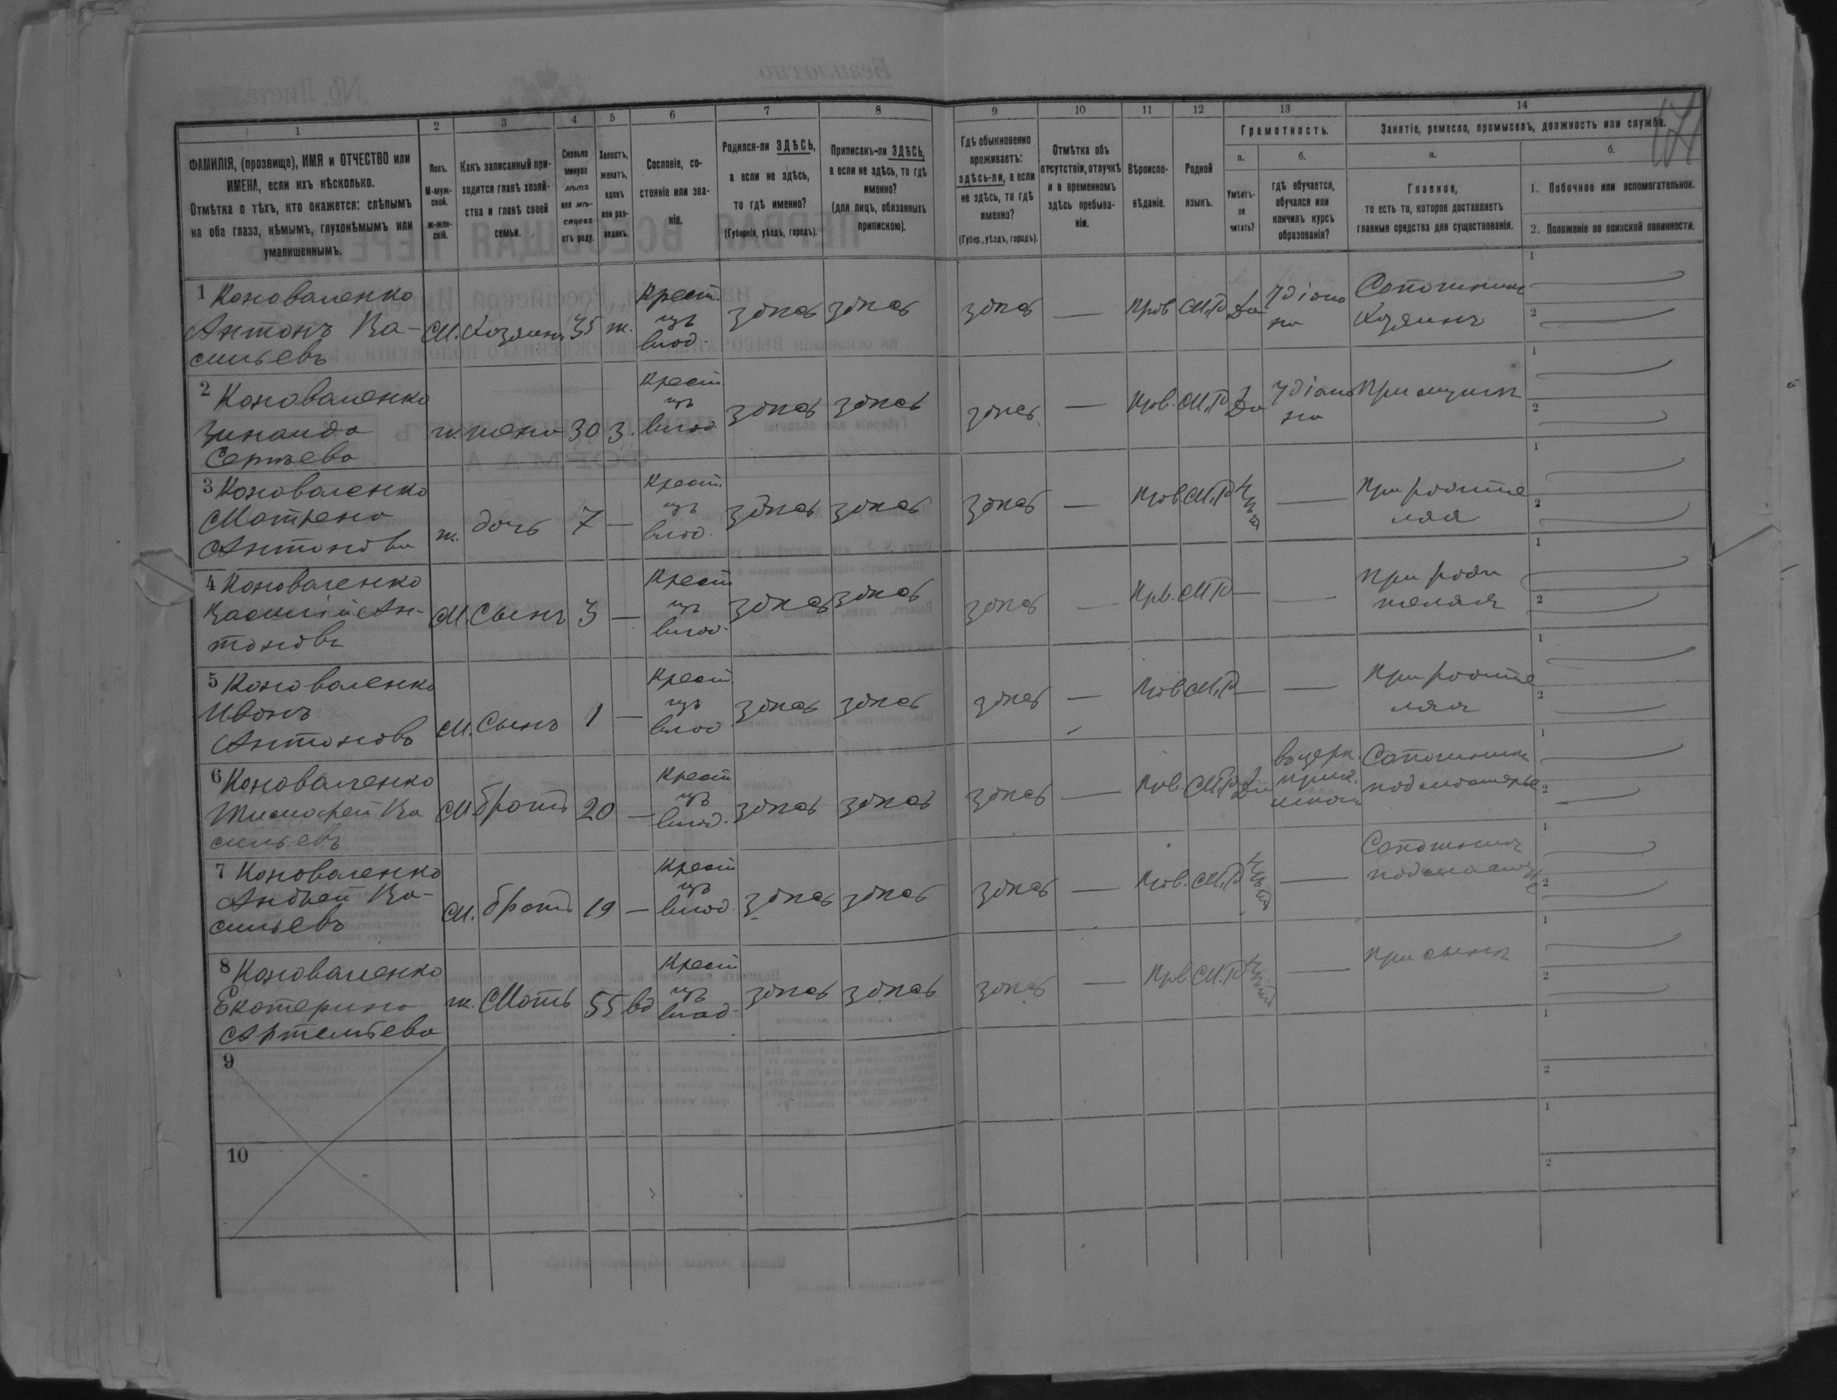 1 2 3 4 5 6 7 8 9 10 11 12 13 14
ФАМИЛІЯ, (прозвище), ИМЯ и ОТЧЕСТВО или
ИМЕНА, если ихъ нѣсколько.
Отмѣтка о тѣхъ, кто окажется: слѣпымъ
на оба глаза, нѣмымъ, глухонѣмымъ или
умалишеннымъ.
Полъ.
М-муж-
ской.
ж-жен-
скій.
Какъ записанный при-
ходится главѣ хозяй-
ства и главѣ своей
семьи.
Сколько
минуло
лѣтъ
или мѣ-
сяцевъ
отъ роду.
Холостъ,
женатъ,
вдовъ
или раз-
веденъ.
Сословіе, со-
стояніе или зва-
ніе.
Родился-ли ЗДѢСЬ,
а если не здѣсь,
то гдѣ именно?
(Губернія, уѣздъ, городъ).
Приписанъ-ли ЗДѢСЬ,
а если не здѣсь, то гдѣ
именно?
(для лицъ, обязанныхъ
припискою).
Гдѣ обыкновенно
проживаетъ:
здѣсь-ли, а если
не здѣсь, то гдѣ
именно?
(Губер., уѣздъ, городъ).
Отмѣтка объ
отсутствіи, отлучкѣ
и о временномъ
здѣсь пребыва-
ніи.
Вѣроиспо-
вѣданіе.
Родной
языкъ.
Грамотность.
а.
Умѣетъ-
ли
читать?
б.
гдѣ обучается,
обучался или
кончилъ курсъ
образованія?
Занятіе, ремесло, промыселъ, должность или служба.
а.
Главное,
то есть то, которое доставляетъ
главныя средства для существованія.
б.
1. Побочное или вспомогательное.
2. Положеніе по воинской повинности.
1 Коноваленко
Антонъ Ва-
сильевъ
М. Хозяинъ 35 ж.
Крест.
изъ
влад.
здѣсь здѣсь здѣсь — Прав М.Р Да
Сапожникъ
Хозяинъ
2 Коноваленко
Зинаида
Сергѣева
ж. жена 30 з.
Крест
изъ
влад
здѣсь здѣсь здѣсь — Прав. М.Р Да
При мужѣ
3 Коноваленко
Матрена
Антонова
ж. дочь 7 —
Крест.
изъ
влад.
здѣсь здѣсь здѣсь — Прав М.Р —
При родите
ляхъ
4 Коноваленко
Василій Ан-
тоновъ
М. Сынъ 3 —
Крест
изъ
влад.
здѣсь здѣсь здѣсь — Прв. М.Р — —
При роди
теляхъ
5 Коноваленко
Иванъ
Антоновъ
М. Сынъ 1 —
Крест
изъ
влад
здѣсь здѣсь здѣсь — Прав М.Р — —
При родите
ляхъ
6 Коноваленко
Тимофей Ва
сильевъ
М братъ 20 —
Крест
изъ
влад.
здѣсь здѣсь здѣсь — Прв. М.Р Да
въ церк.
прих.
школѣ
Сапожникъ
подмастерье
7 Коноваленко
Андрей Ва-
сильевъ
М. братъ 19 —
Крест
изъ
влад.
здѣсь здѣсь здѣсь — Прав. М.Р —
Сапожникъ
подмастерье
8 Коноваленко
Екатерина
Артемьева
ж. Мать 55 вд
Крест
изъ
влад.
здѣсь здѣсь здѣсь — Прв М.Р —
При сынѣ
9
10